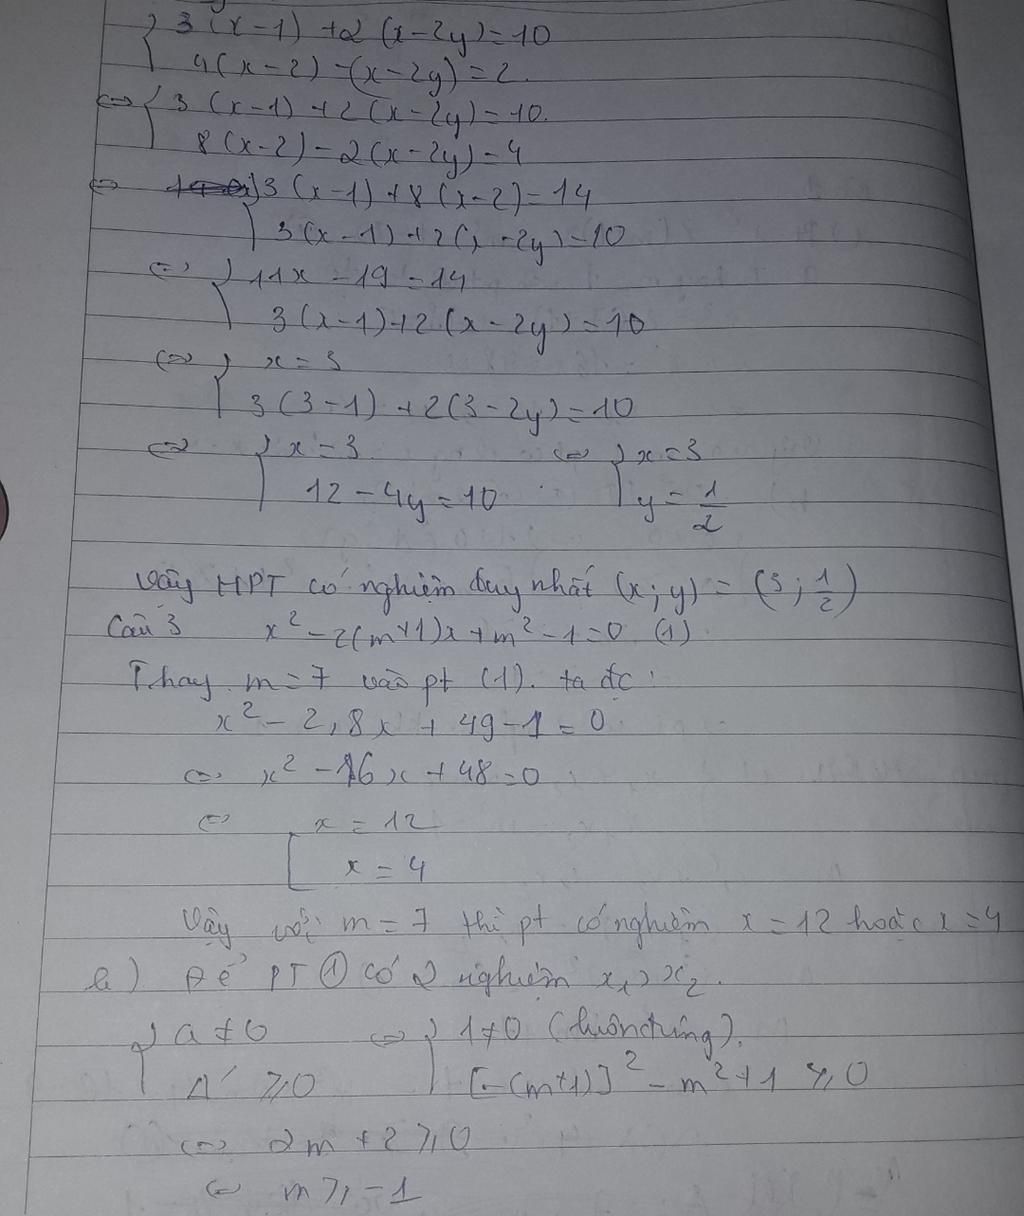 { 3(x-1) +2(x-2y)=10
4(x-2) -(x-2y)=2.
<=> { 3(x-1)+2(x-2y)=10.
8(x-2)-2(x-2y)=4
<=> { 3(x-1)+8(x-2)=14
3(x-1)+2( -2y)=10
<=> { 11x-19=14
3(x-1)+2(x-2y)=10
<=> { x=3
3(3-1)+2(3-2y)=10
<=> { x=3 <=> { x=3
12-4y=10 y=1/2
Vậy HPT có nghiệm duy nhất (x;y)=(3;1/2)
Câu 3 x²-2(m+1)x+m²-1=0 (1)
Thay m=7 vào pt (1). ta đc:
x²-2,8x+49-1=0
<=> x²-16x+48=0
<=> [ x=12
x=4
Vậy với m=7 thì pt có nghiệm x=12 hoặc x=4
b) Để PT ① có 2 nghiệm x₁, x₂.
{ a≠0 <=> { 1≠0 (luôn đúng).
Δ' ⩾0 [-(m+1)]²-m²+1 ⩾0
<=> 2m+2⩾0
<=> m⩾-1